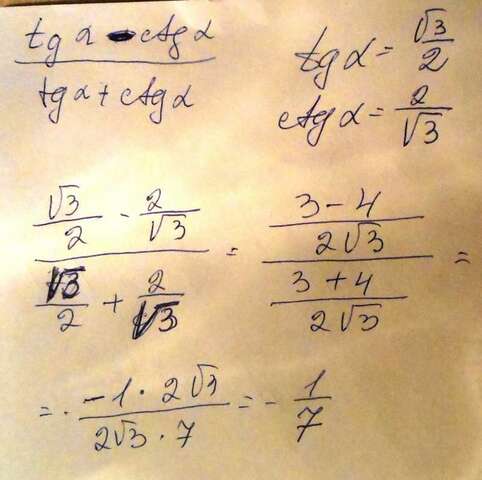 (tg α - ctg α) / (tg α + ctg α)
tg α = √3/2
ctg α = 2/√3
(√3/2 - 2/√3) / (√3/2 + 2/√3) = ((3 - 4)/(2√3)) / ((3 + 4)/(2√3)) =
= (-1 · 2√3) / (2√3 · 7) = - 1/7